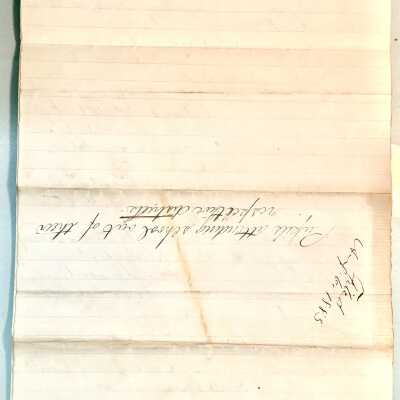 Pupils attending school out of their
respective districts.
Filed
Aug 6. 1883